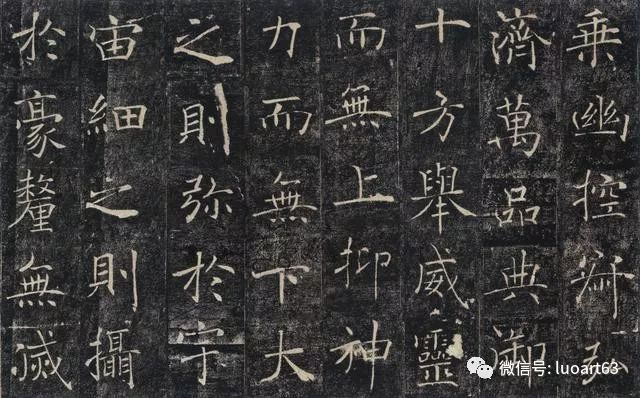 乘幽控寂弘
濟萬品典御
十方舉威靈
而無上抑神
力而無下大
之則弥於宇
宙細之則攝
於豪釐無滅
微信号: luoart63